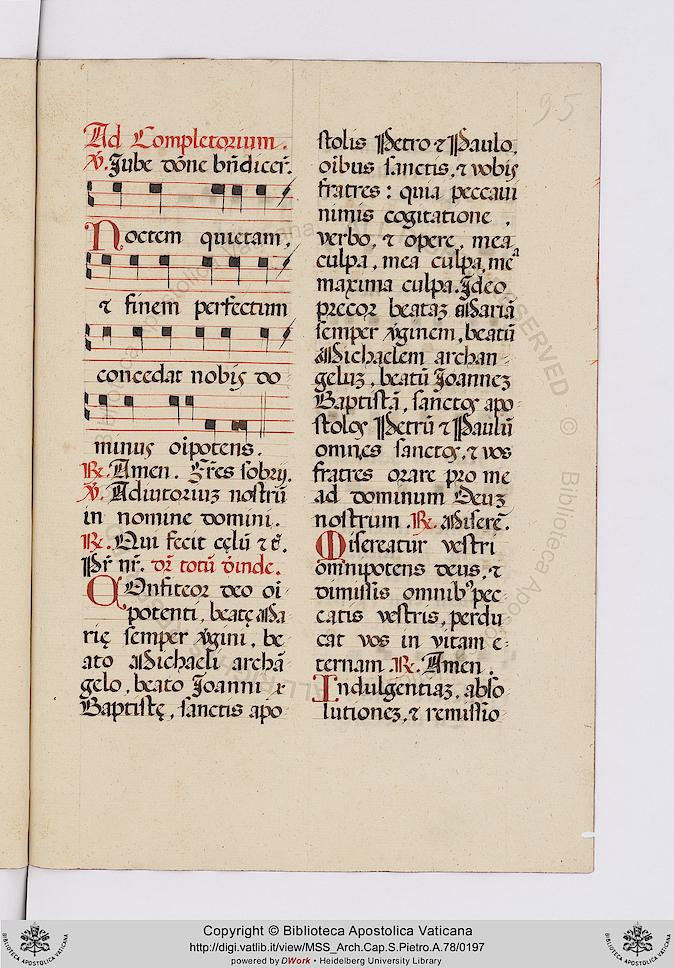 95
Ad Completorium.
℣. Jube dōne bn̄dicer̄.
Noctem quietam,
⁊ finem perfectum
concedat nobis do
minus oīpotens.
℟. Amen. Fr̄es sobrij.
℣. Adiutoriuꝫ nostrū
in nomine domini.
℟. Qui fecit cęlū ⁊ t̄.
Pr̄ nr̄. dr̄ totū d̄inde.
COnfiteor deo oī
potenti, beatę Ma
rię semper v̄gini, be
ato Michaeli archā
gelo, beato Joanni
Baptistę, sanctis apo
stolis Petro ⁊ Paulo,
oībus sanctis, ⁊ vobis
fratres: quia peccaui
nimis cogitatione,
verbo, ⁊ opere, mea
culpa, mea culpa, meᵃ
maxima culpa. Ideo
precor beataꝫ Mariā
semper v̄ginem, beatū
Michaelem archan
geluꝫ, beatū Joanneꝫ
Baptistā, sanctos apo
stolos Petrū ⁊ Paulū
omnes sanctos, ⁊ vos
fratres orare pro me
ad dominum Deuꝫ
nostrum. ℟. Miserē.
Misereatur vestri
omnipotens deus, ⁊
dimissis omnibꝰ pec
catis vestris, perdu
cat vos in vitam e
ternam. ℟. Amen.
Indulgentiaꝫ, abso
lutioneꝫ, ⁊ remissio
Copyright © Biblioteca Apostolica Vaticana
http://digi.vatlib.it/view/MSS_Arch.Cap.S.Pietro.A.78/0197
powered by DWork • Heidelberg University Library
BIBLIOTECA APOSTOLICA VATICANA
BIBLIOTECA APOSTOLICA VATICANA